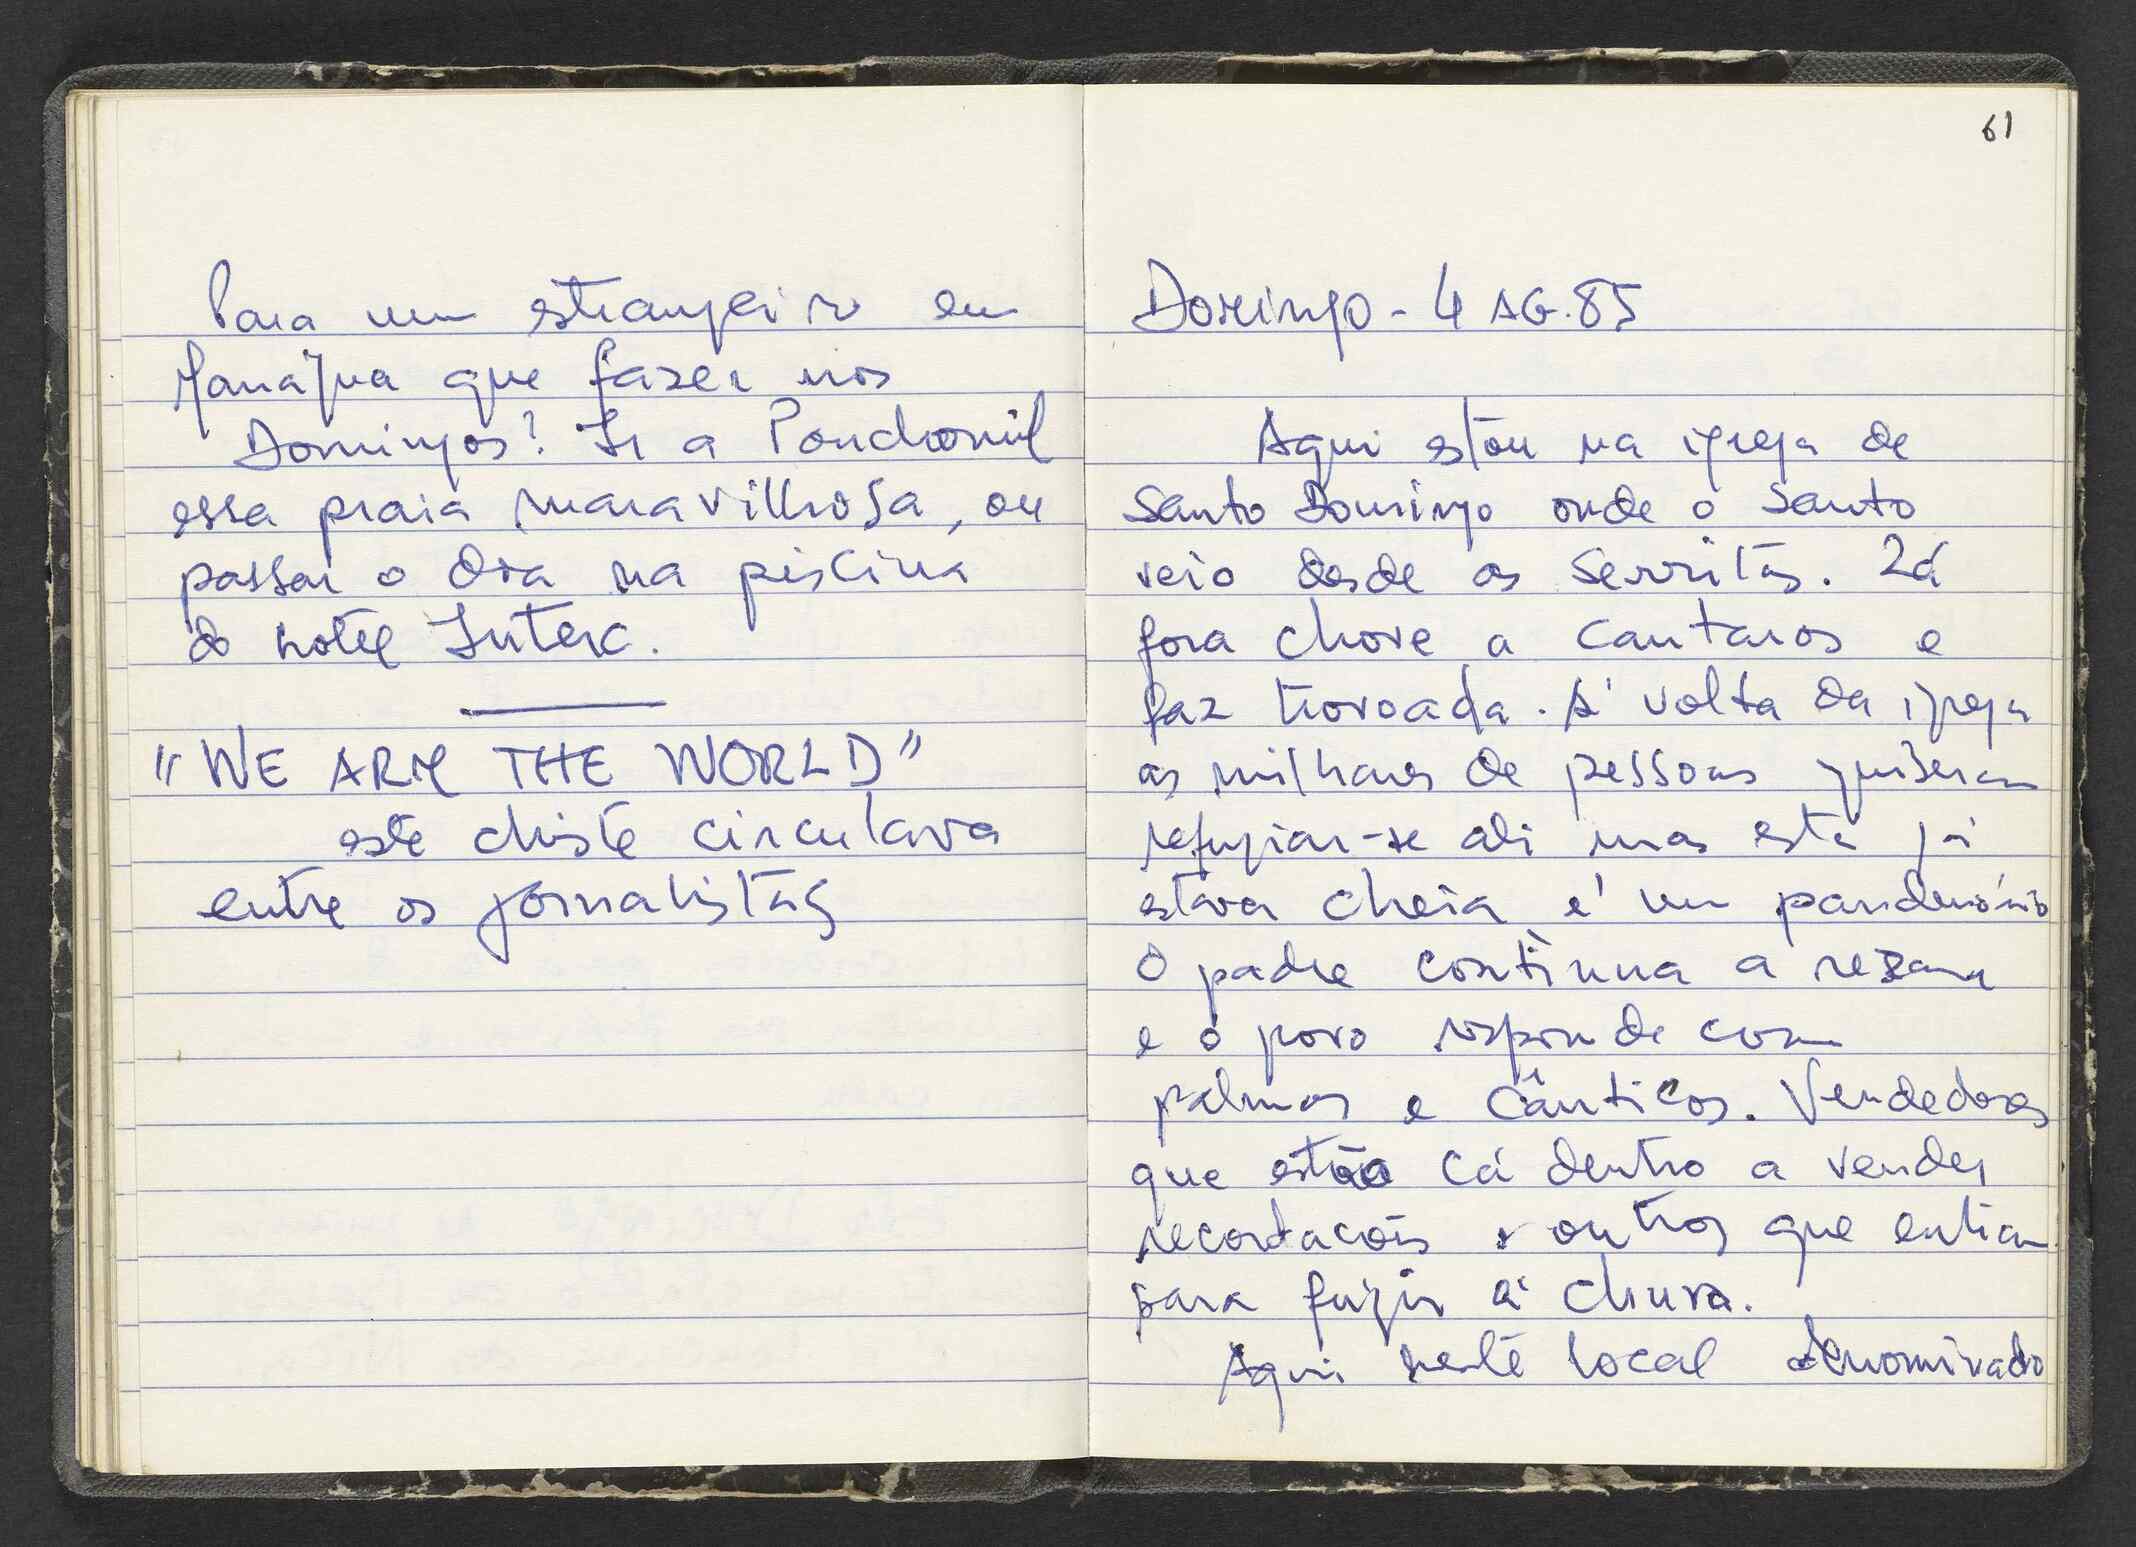 Para um estrangeiro em
Manágua que fazer nos
Domingos? Ir a Ponchomil
essa praia maravilhosa, ou
passar o dia na piscina
do hotel Interc.
"WE ARM THE WORLD"
este chiste circulava
entre os jornalistas
61
Domingo - 4 AG. 85
Aqui estou na igreja de
Santo Domingo onde o Santo
veio desde as Serritas. Lá
fora chove a cantaros e
faz trovoada. Á volta da igreja
as milhares de pessoas quiseram
refugiar-se ali mas esta já
estava cheia é um pandemónio
O padre continua a rezar
e o povo responde com
palmas e cânticos. Vendedores
que estão cá dentro a vender
recordacões e outros que entram
para fugir á chuva.
Aqui neste local denominado